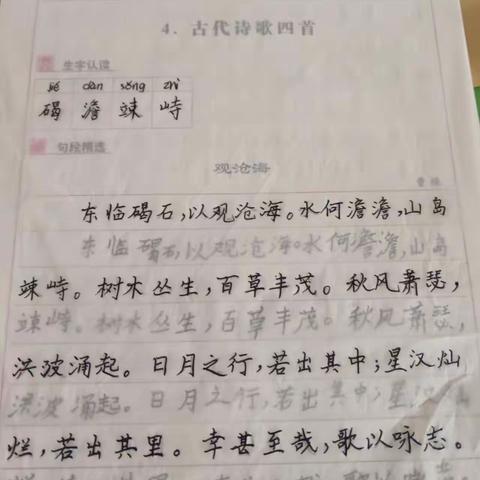 4. 古代诗歌四首
生字认读
jié dàn sǒng zhì
碣 澹 竦 峙
句段精选
观沧海
曹操
东临碣石,以观沧海。水何澹澹,山岛
东临碣石,以观沧海。水何澹澹,山岛
竦峙。树木丛生,百草丰茂。秋风萧瑟,
竦峙。树木丛生,百草丰茂。秋风萧瑟,
洪波涌起。日月之行,若出其中;星汉灿
洪波涌起。日月之行,若出其中;星汉灿
烂,若出其里。幸甚至哉,歌以咏志。